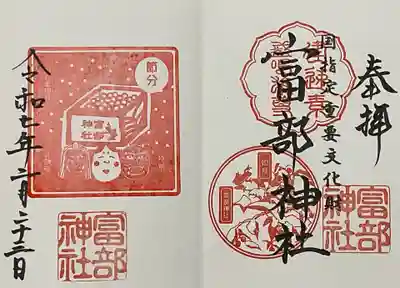 奉拝
国指定重要文化財
富部神社
富部神社
節分
富部神社
令和七年二月二十三日
富部神社